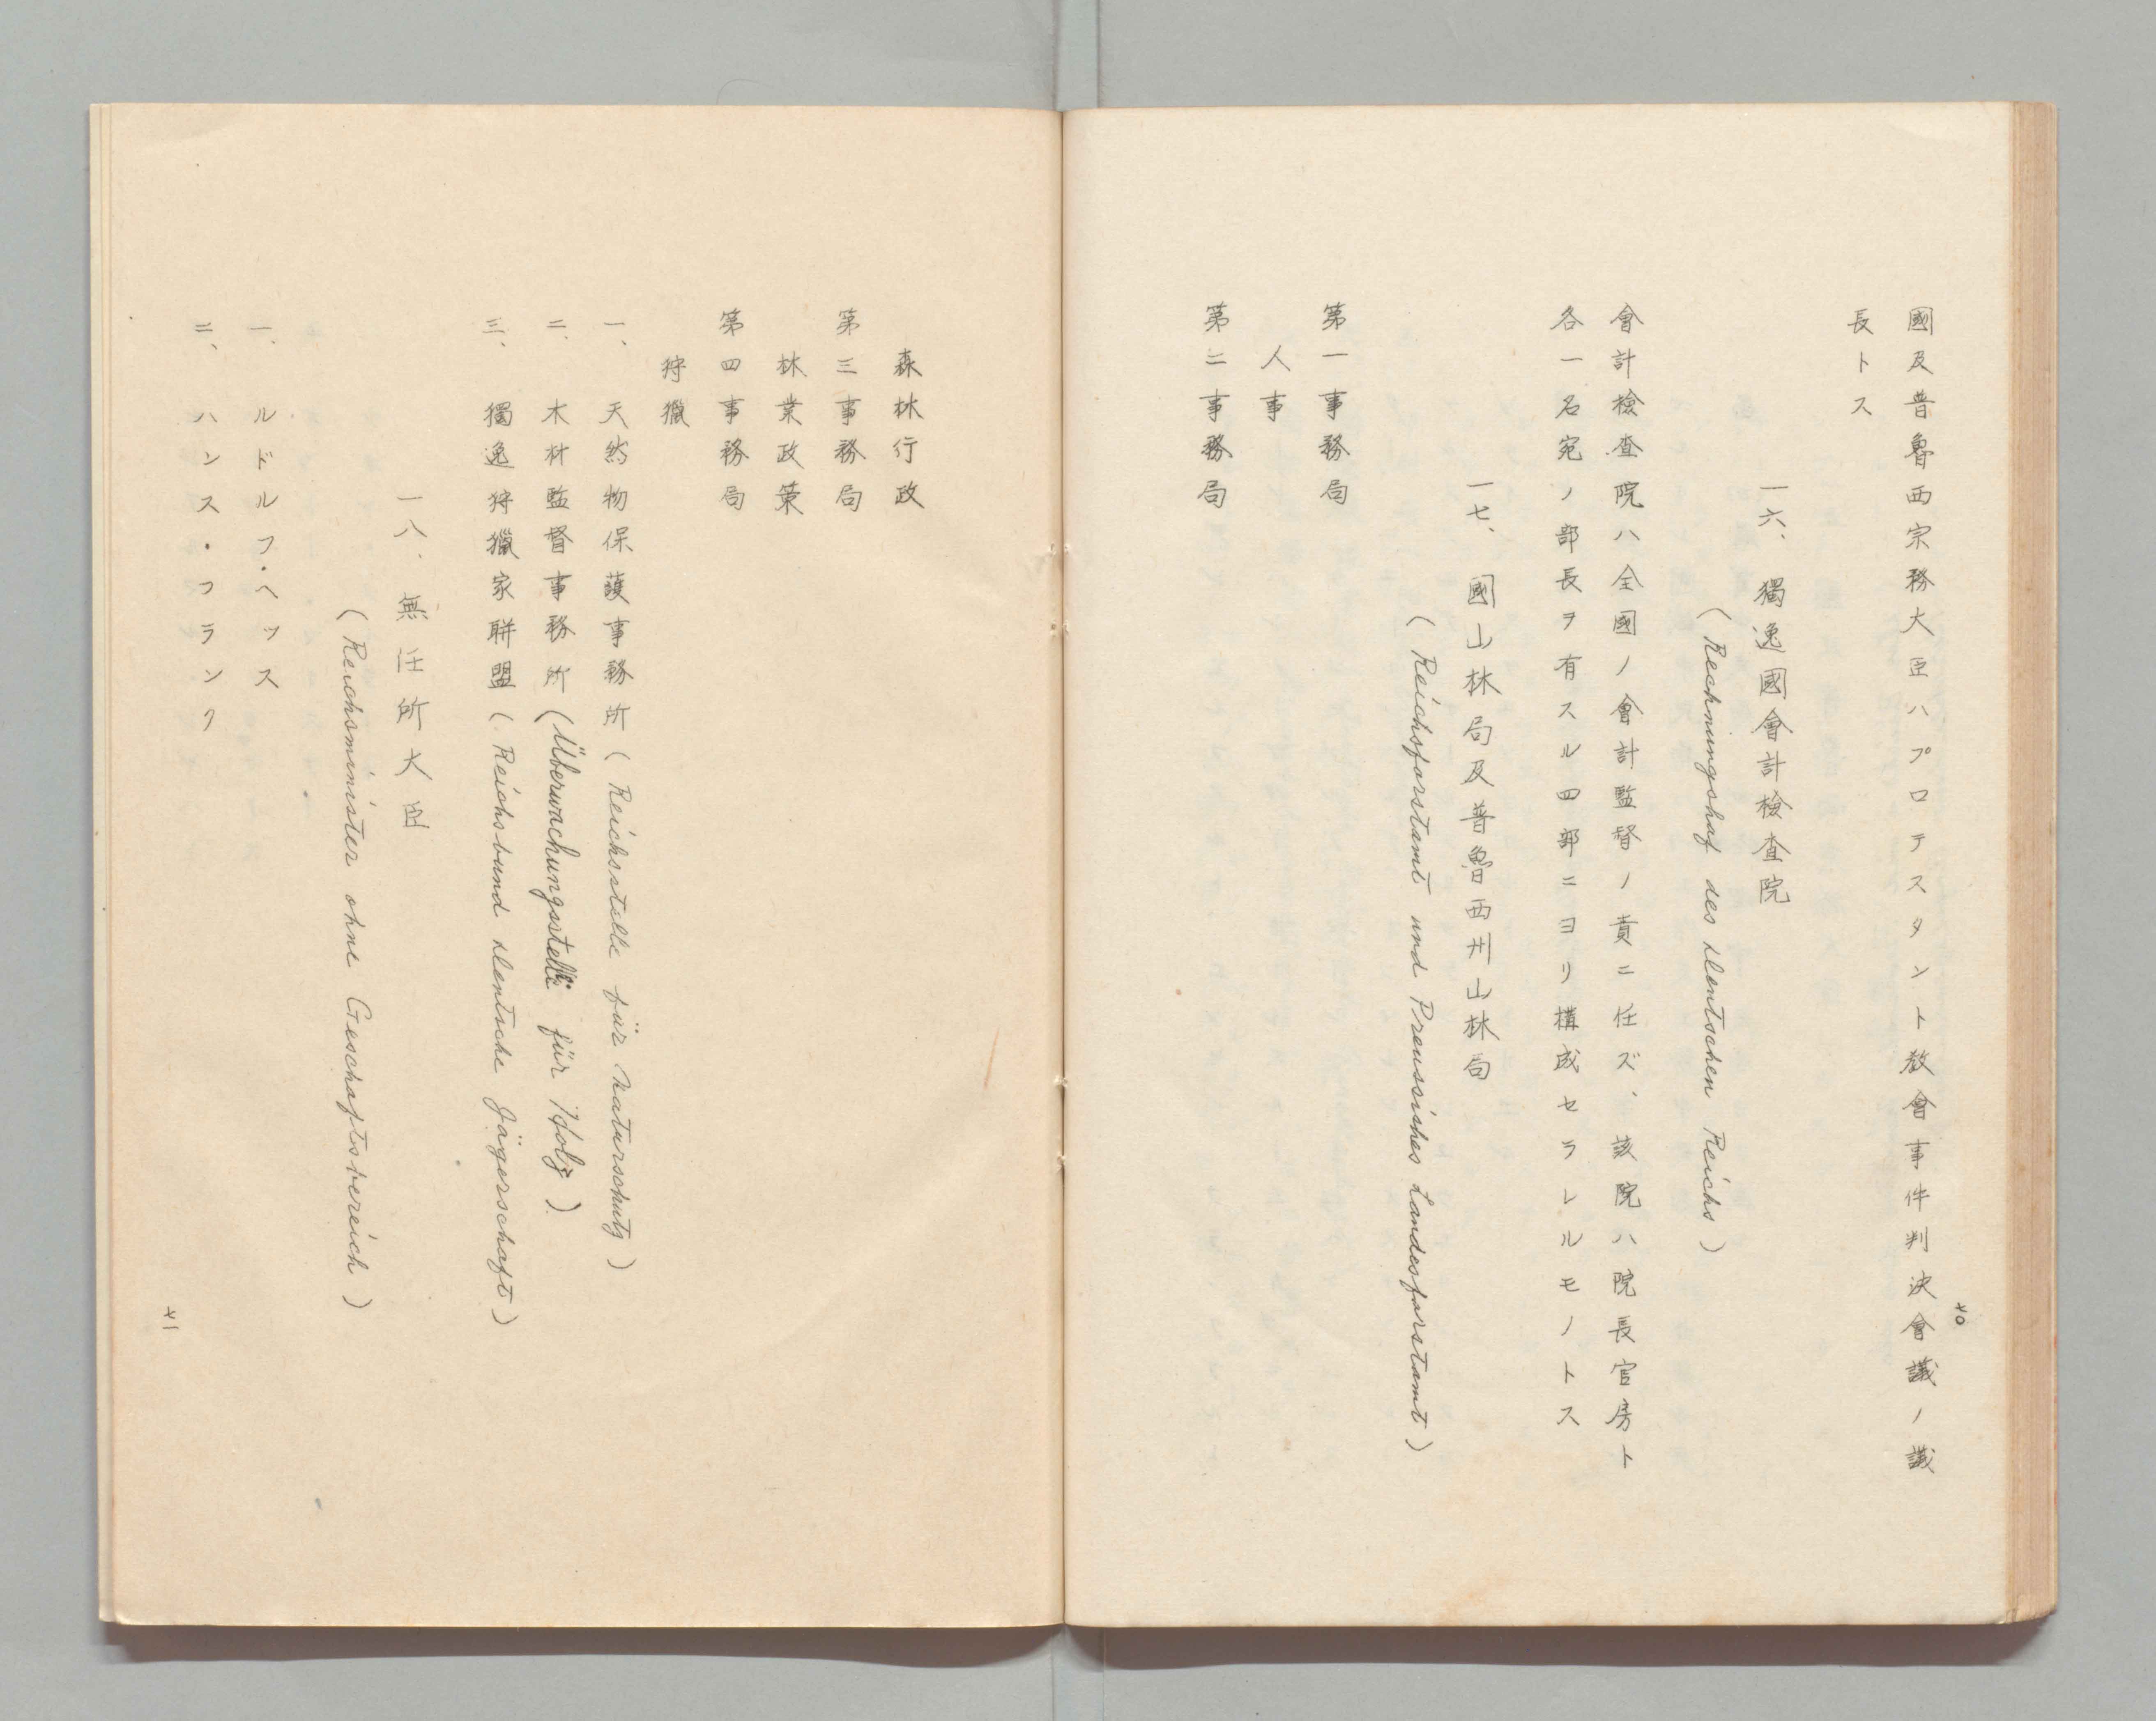 七〇
國及普魯西宗務大臣ハプロテスタント教會事件判決會議ノ議
長トス
一六、獨逸國會計檢査院
(Rechnungshof des deutschen Reichs)
會計檢査院ハ全國ノ會計監督ノ責ニ任ズ、該院ハ院長官房ト
各一名宛ノ部長ヲ有スル四部ニヨリ構成セラレルモノトス
一七、國山林局及普魯西州山林局
(Reichsforstamt und Preussishes Landesforstamt)
第一事務局
人事
第二事務局
森林行政
第三事務局
林業政策
第四事務局
狩獵
一、天然物保護事務所(Reichsstelle für Naturschutz)
二、木材監督事務所(Überwachungsstelle für Holz)
三、獨逸狩獵家聯盟(Reichsbund deutsche Jägerschaft)
一八、無任所大臣
(Reichsminister ohne Geschaftsbereich)
一、ルドルフ・ヘッス
二、ハンス・フランク
七一